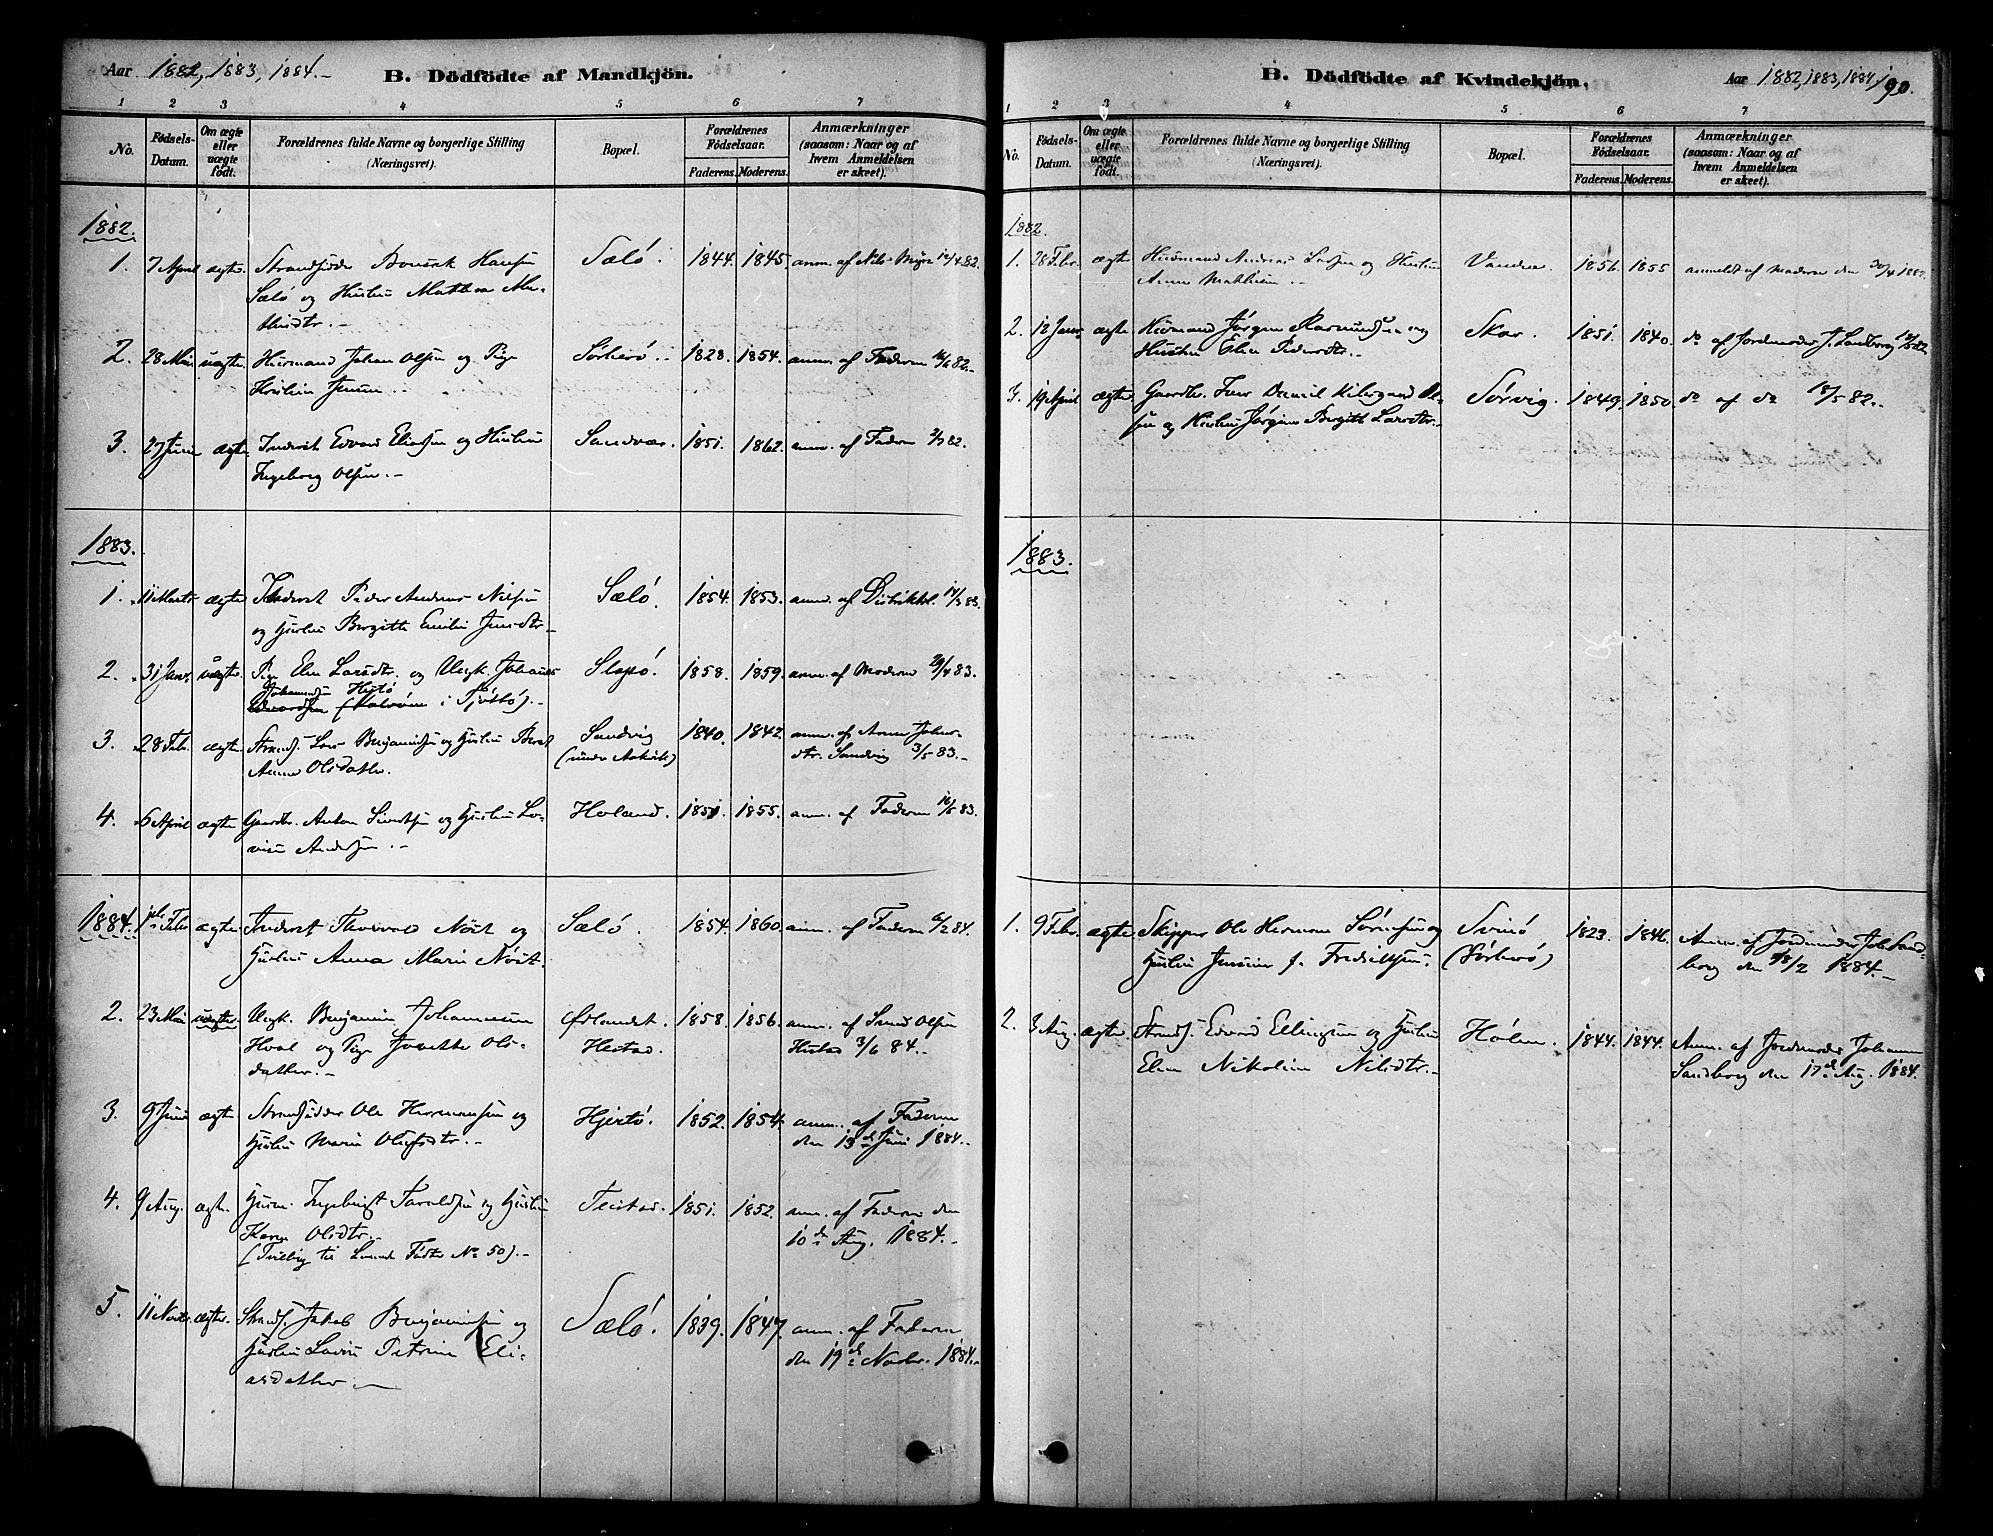 Aar 1882, 1883, 1884.- B. Dödfödte af Mandkjön.
1 2 3 4 5 6 7
No. Fødsels-Datum. Om ægte eller uægte født. Forældrenes fulde Navne og borgerlige Stilling (Næringsvei). Bopæl. Forældrenes Fødselsaar. Faderens. Moderens. Anmærkninger (saasom: Naar og af hvem Anmeldelsen er skeet).
1882.
1. 7 April ægte Strandsidder Hansen Sælö. 1844. 1845 anm. af Nils Myrs 12/4 82.
Sælö og Hustru Mathea Ma-
thisdtr.-
2. 28 Mai uægte. Huusmand Johan Olsen og Pige Sörherö. 1828. 1854. anm. af Faderen 82.-
Jensen.-
3. 27 Juni ægte. Inderst Edvard Eliassen og Hustru Sandvær. 1851. 1862. anm. af Faderen 82.
Ingeborg Olsen.-
1883.
1. 11 Marts ægte Inderst Peder Andreas Nilsen Sælö. 1854. 1853. anm. af Distriktsl. 83.
og Hustru Birgitte Emilie Jensdtr.-
2. 31 Janr. uægte. Pige Elen Larsdtr. og Ungk. Johannes Slapö. 1858. 1859. anm. af Moderen 29/4 83.
Johannessen
i Tjöttö).-
3. 28 Febr. ægte. Strands. Lars Benjaminsen og Hustru Berit Sandvig 1840. 1842. anm. af Anne Johns-
Anna Olsdatter. (under ) dtr. Sandvig 3/5 83.-
4. 6 April ægte Gaardbr. Anton Sivertsen og Hustru Lo- Holand. 1851 1855. anm. af Faderen 16/5 83.
vise Andersen.-
1884. 1ste Febr. ægte Inderst Thorvald Nöst og Sælö. 1854. 1860. anm. af Faderen 6/2 84.
Hustru Anna Marie Nöst.
2. 23 Mai uægte. Ungk. Benjamin Johannessen 1858. 1856. anm. af Olsen
og Pige Jonette Ols- 3/6 84.-
datter.-
3. 9 Juni ægte Strandsidder Ole Hermansen og Hjertö. 1852. 1854. anm. af Faderen
Hustru Marie Olufsdtr.- den 13de Juni 1884.-
4. 9 Aug. ægte. Husm. Ingebrigt Taraldsen og Hustru Teistad. 1851. 1852. anm. af Faderen den
Karen Olsdtr.- 10de Aug. 1884.-
(Tvilling til Levende Födte No 50).-
5. 11 Novbr. ægte. Strands. Jakob Benjaminsen og Sælö. 1839. 1847. anm. af Faderen
Hustru Lovise Petrine Eli- den 19de Novbr. 1884.-
asdatter.-
B. Dödfödte af Kvindekjön. Aar 1882, 1883, 1884. 190.
1 2 3 4 5 6 7
No. Fødsels-Datum. Om ægte eller uægte født. Forældrenes fulde Navne og borgerlige Stilling (Næringsvei). Bopæl. Forældrenes Fødselsaar. Faderens. Moderens. Anmærkninger (saasom: Naar og af hvem Anmeldelsen er skeet).
1882.
1. 28 Febr. ægte Huusmand Andreas og Hustru 1856. 1855 anmeldt af Moderen den 30/4 1882.
Anne
2. 12 Janr. ægte Huusmand Jörgen Rasmussen og Skar. 1851. 1840. do af Jordmoder J. Sandberg 82.
Hustru Elen Pedersdtr.-
3. 19 April ægte Gaardbr. Daniel Ol- Sörvig. 1849. 1850. do af do 18/5 82.-
sen og Hustru Jörgine Birgitte Larsdtr.-
1883.
1. 9 Febr. ægte Skipper Ole Hermann Sörensen og Svinö 1823. 1846. Anm. af Jordmoder Joh. Sand-
Hustru f. Fredriksen. (Sörherö) berg den 18/2 1884.-
2. 3 Aug. ægte. Strands. Edvard Ellingsen og Hustru Holm. 1844. 1844. Anm. af Jordmoder Johanna
Elen Nikoline Nilsdtr.- Sandberg den 17de Aug. 1884.